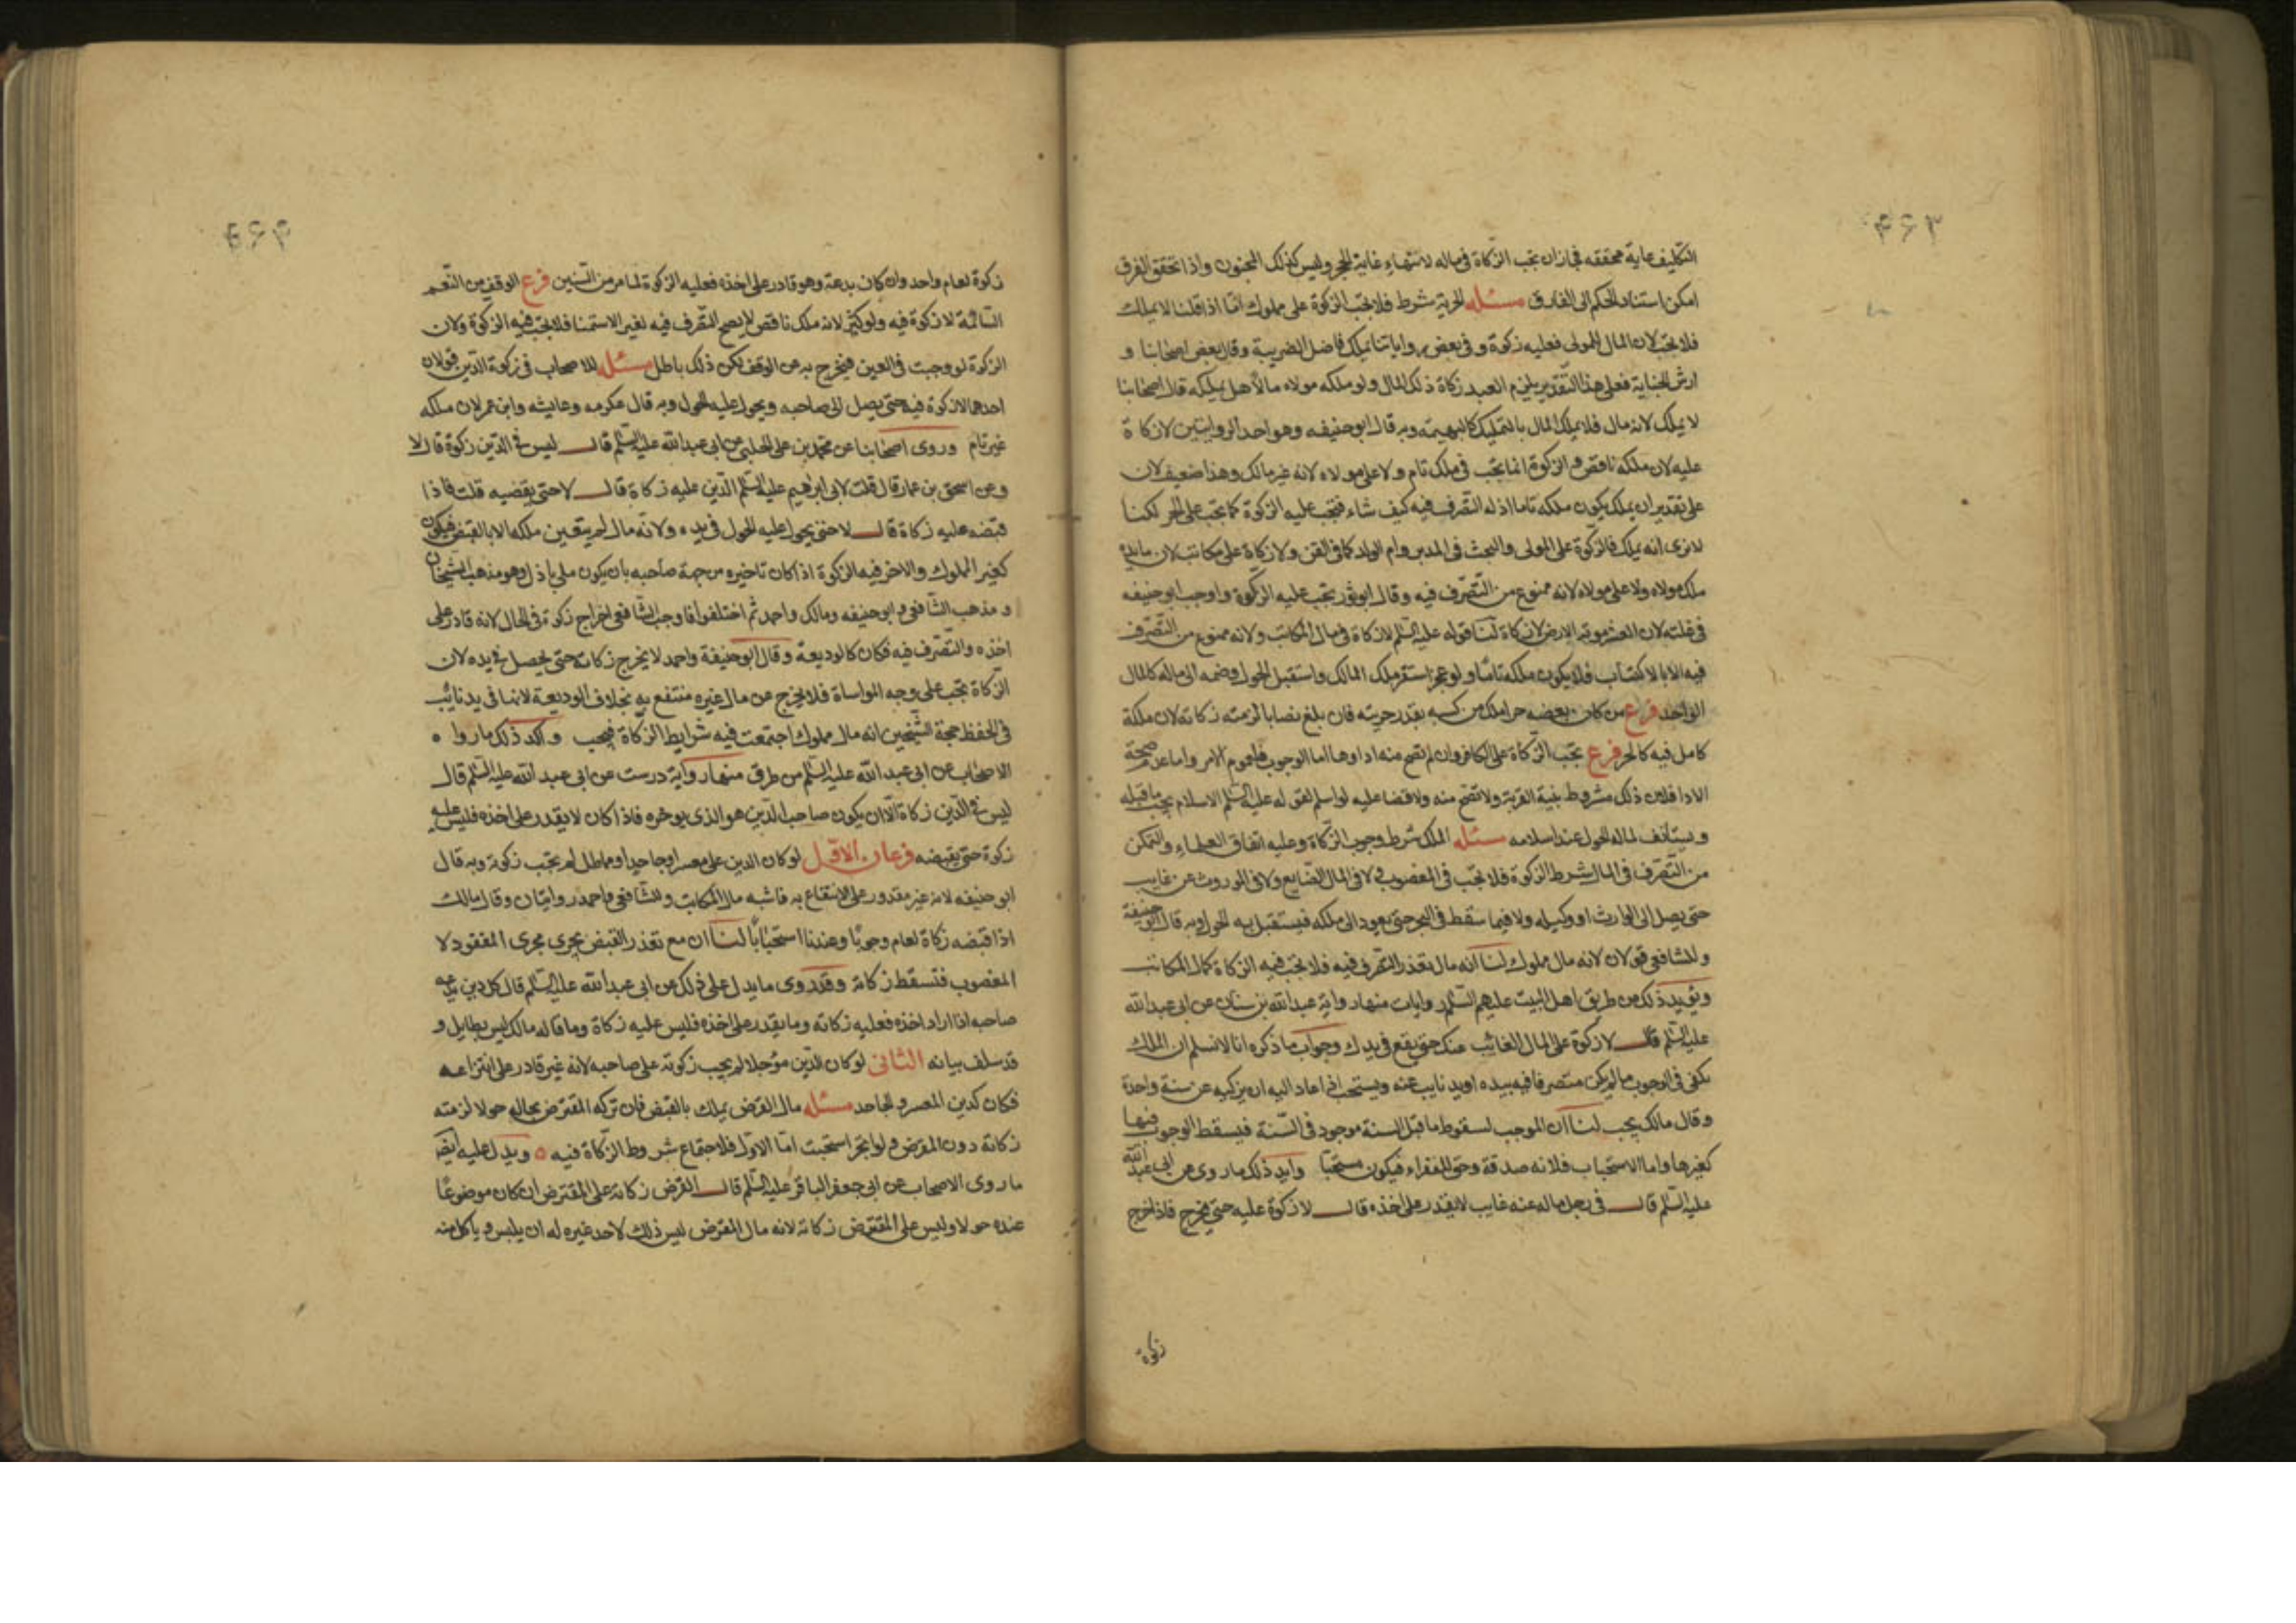 ۴۶۳
التكليف غاية محققه فجازان تجب الزكاة فى ماله لانتهاء غاية الحجر وليس كذلك المجنون واذا تحقق الفرق
امكن استناد الحكم الى الفارق مسئله الحرية شرط فلا تجب الزكوة على مملوك امّا اذا قلنا لا يملك
فلا تجب لان المال للمولى فعليه زكوة و فى بعض رواياتنا يملك فاضل الضريبة وقال بعض اصحابنا و
ارش الجناية فعلى هذا التقدير يلزم العبد زكاة ذلك المال ولو ملكه مولاه مالا هل يملكه قال اصحابنا
لا يملك لانه مال فلا يملك المال بالتمليك كالبهيمة وبه قال ابوحنيفه وهو احد الروايتين لا زكاة
عليه لان ملكه ناقص والزكوة انما تجب فى ملك تام ولا على مولاه لانه غير مالك وهذا ضعيف لان
على تقدير ان يملك يكون ملكه تاما اذ له التصرف فيه كيف شاء فتجب عليه الزكوة كما تجب على الحر لكنا
لا نرى انه يملك فالزكوة على المولى والبحث فى المدبر وام الولد كما فى القن ولا زكاة على مكاتب لان مابيده
ملك مولاه ولا على مولاه لانه ممنوع من التصرف فيه وقال ابو ثور تجب عليه الزكوة واوجب ابوحنيفه
فى غلته لان العشر موته الارض لا زكاة لنا قوله عليه السلم لا زكاة فى مال المكاتب ولانه ممنوع من التصرف
فيه الا بالاكتساب فلا يكون ملكه تاما ولو عجز استقر ملك المالك واستقبل الحول وضمه الى ماله كالمال
الواحد فرع من كان بعضه حرا ملك من كسبه بقدر حريته فان بلغ نصابا لزمته زكاته لان ملكة
كامل فيه كالحر فرع تجب الزكاة على الكافر وان لم تصح منه اداوها اما الوجوب فلعموم الامر واما عدم صحة
الادا فلان ذلك مشروط بنية القربة ولا تصح منه ولا قضا عليه لو اسلم لقوله عليه السلم الاسلام يجب ما قبله
ويستأنف لماله الحول عند اسلامه مسئله الملك شرط وجوب الزكاة وعليه اتفاق العلماء والتمكن
من التصرف فى المال شرط الزكوة فلا تجب فى المغصوب ولا فى المال الضايع ولا فى الموروث عن غايب
حتى يصل الى الوارث او وكيله ولا فيما سقط فى البحر حتى يعود الى ملكه فيستقبل به الحول وبه قال ابو حنيفة
وللشافعى قولان لانه مال مملوك لنا انه مال تعذر التصرف فيه فلا تجب فيه الزكاة كمال المكاتب
ويؤيد ذلك من طريق اهل البيت عليهم السلم روايات منها رواية عبدالله بن سنان عن ابى عبدالله
عليه السلم قال لا زكوة على المال الغائب عنك حتى يقع فى يدك وجواب ما ذكره انا لا نسلم ان الملك
يكفى فى الوجوب ما لم يكن متصرفا فيه بيده او يد نايب عنه ويستحب اذا عاد اليه ان يزكيه عن سنة واحدة
وقال مالك يجب لنا ان الموجب لسقوط ما قبل السنة موجود فى السّنة فيسقط الوجوب فيها
كغيرها واما الاستحباب فلانه صدقة وحق للفقراء فيكون مستحبا وايد ذلك ما روى عن ابى عبد الله
عليه السلم قال فى رجل ماله عنه غايب لا يقدر على اخذه قال لا زكوة عليه حتى يخرج فاذا خرج
زكوة
۴۶۴
زكوة لعام واحد وان كان يدعه وهو قادر على اخذه فعليه الزكوة لما مر من السنين فرع الوقف من النّعم
السائمة لا زكوة فيه ولو كثر لانه ملك ناقص لا يصح التصرف فيه لغير الاستمنا فلا تجب فيه الزكوة ولان
الزكوة لو وجبت فى العين فيخرج به عن الوقف لكن ذلك باطل مسئله للاصحاب فى زكوة الدّين قولان
احدهما لا زكوة فيه حتى يصل الى صاحبه ويحول عليه الحول وبه قال عكرمه وعايشه وابن عمر لان ملكه
غير تام وروى اصحابنا عن محمد بن على الحلبى عن ابى عبدالله عليه السلم قال ليس فى الدّين زكوة قال لا
وعن اسحق بن عمار قال قلت لابى ابرهيم عليه السلم الدّين عليه زكاة قال لا حتى يقضيه قلت فاذا
قبضه عليه زكاة قال لا حتى يحول عليه الحول فى يده ولانّه مال لم يتعين ملكه الا بالقبض فيكون
كغير المملوك والاخر فيه الزكوة اذا كان تاخيره من جهة صاحبه بان يكون ملى باذل وهو مذهب الشيخان
و مذهب الشافعى وابوحنيفه ومالك واحمد ثم اختلفوا فاوجب الشافعى اخراج زكوة فى الحال لانه قادر على
اخذه والتصرف فيه فكان كالوديعة وقال ابوحنيفة واحمد لا يخرج زكاته حتى يحصل فى يده لان
الزكاة تجب على وجه المواساة فلا يخرج عن مال غيره منتفع به بخلاف الوديعة لانها فى يد نائب
فى الحفظ حجة الشيخين انه مال مملوك اجتمعت فيه شرايط الزكاة فيجب واكد ذلك ما رواه
الاصحاب عن ابى عبدالله عليه السلم من طرق منها رواية درست عن ابى عبدالله عليه السلم قال
ليس فى الدّين زكاة الّا ان يكون صاحب الدّين هو الذى يوخره فاذا كان لا يقدر على اخذه فليس عليه
زكوة حتى يقبضه فرعان الاوّل لو كان الدين على معسر او جاحد او مماطل لم تجب زكوته وبه قال
ابو حنيفه لانه غير مقدور على الانتفاع به فاشبه مال المكاتب وللشافعى واحمد روايتان وقال مالك
اذا قبضه زكاة لعام وجوبا وعندنا استحبابا لنا ان مع تعذر القبض يجرى مجرى المفقود لا
المغصوب فتسقط زكاته وقد روى ما يدل على ذلك عن ابى عبدالله عليه السلم قال كل دين يدعه
صاحبه اذا اراد اخذه فعليه زكاته وما يقدر على اخذه فليس عليه زكاة وما قاله مالك ليس بطايل و
قد سلف بيانه الثانى لو كان الدّين مؤجلا لم يجب زكوته على صاحبه لانه غير قادر على انتزاعه
فكان كدين المعسر والجاحد مسئله مال القرض يملك بالقبض فان تركه المقترض بحاله حولا لزمته
زكاته دون المقرض ولو اتجر استحبت امّا الاوّل فلاجتماع شروط الزكاة فيه ه ويدل عليه ايضا
ما روى الاصحاب عن ابى جعفر الباقر عليه السلم قال القرض زكاته على المقترض ان كان موضوعًا
عنده حولا وليس على المقترض زكاته لانه مال المقرض ليس ذلك لاحد غيره له ان يلبس وياكل منه